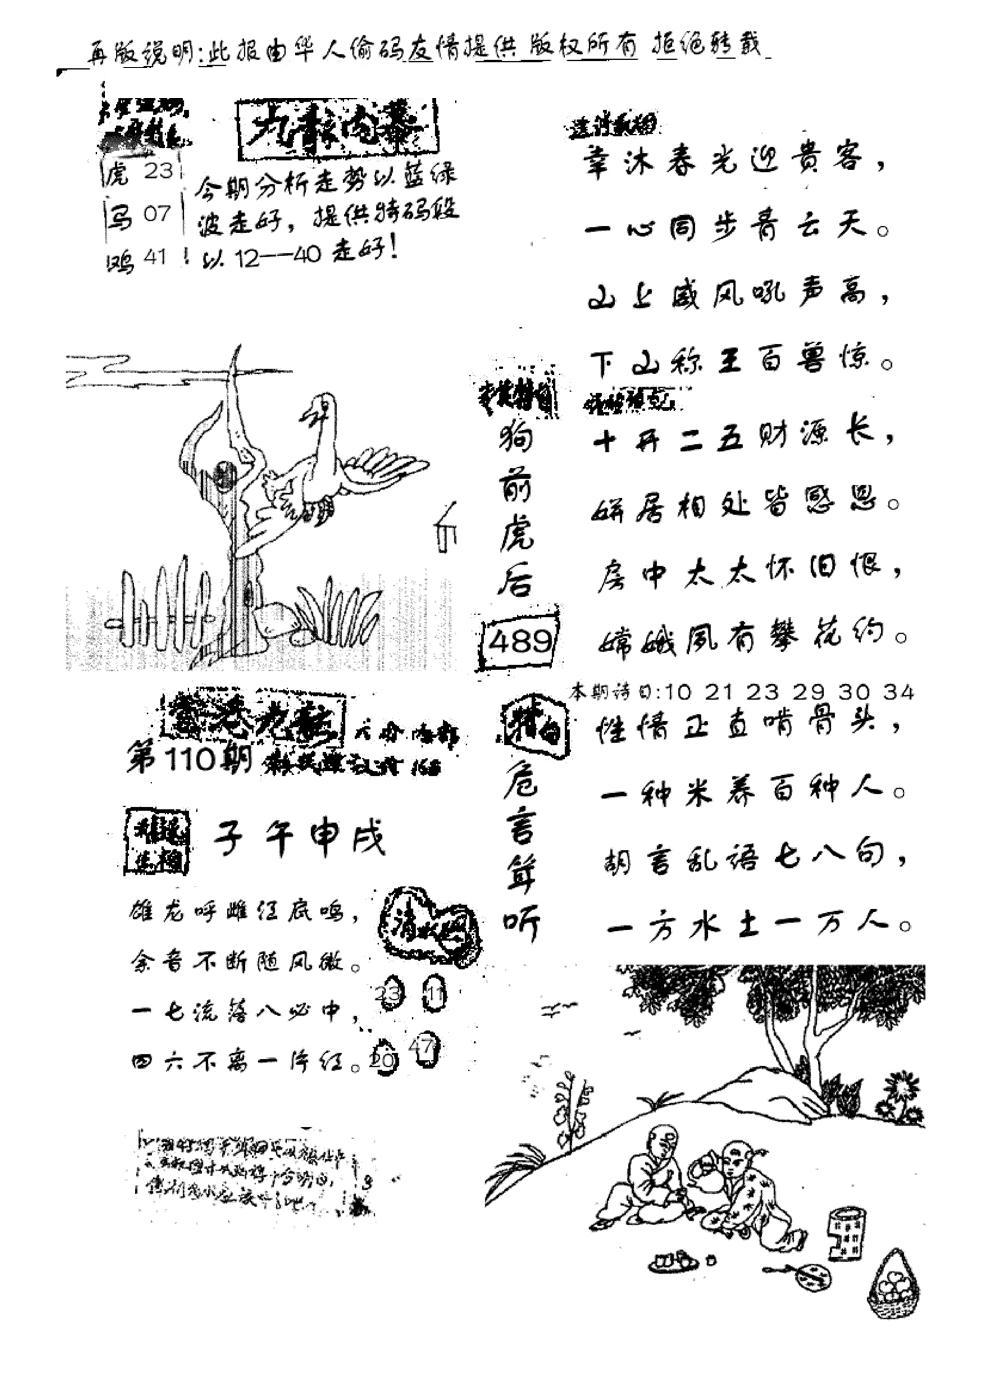 再版说明:此报由华人偷码友情提供 版权所有 拒绝转载
九龍内幕
虎 23
马 07
鸡 41
今期分析走势以蓝绿
波走好，提供特码段
以12--40走好!
幸沐春光迎贵客，
一心同步青云天。
山上威风吼声高，
下山称王百兽惊。
狗前虎后
489
十开二五财源长，
姘居相处皆感恩。
房中太太怀旧恨，
嫦娥夙有攀花约。
本期诗曰:10 21 23 29 30 34
性情正直啃骨头，
一种米养百种人。
胡言乱语七八句，
一方水土一万人。
特句
危言耸听
香港九龍
第110期
子午申戌
雄龙呼雌经底鸣，
余音不断随风微。
一七流落八必中，
四六不离一片红。
23 11
20 47